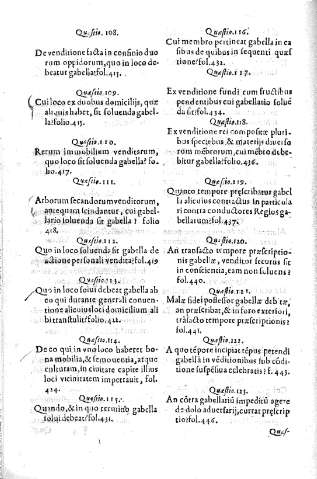 Quæstio. 108.
De venditione facta in confinio duo
rum oppidorum, quo in loco de-
beatur gabella? fol. 413.
Quæstio. 109.
Cui loco ex duobus domicilijs, quæ
aliquis habet, sit soluenda gabel-
la? folio. 415.
Quæstio. 110.
Rerum immobilium venditarum,
quo loco sit soluenda gabella? fo.
lio. 417.
Quæstio. 111.
Arborum secandorum venditorum,
antequam scindantur, cui gabel-
lario soluenda sit gabella? folio
418.
Quæstio. 112.
Quo in loco soluenda sit gabella de
actione personali vendita? fol. 419
Quæstio. 113.
Quo in loco solui debeat gabella ab
eo qui durante generali conuen-
tione alicuius loci domicilium ali
bi transtulit? folio. 422.
Quæstio. 114.
De eo qui in vno loco haberet bo-
na mobilia, & semouentia, atque
culturam, in ciuitate capite illius
loci vicinitatem impetrauit, fol.
424.
Quæstio. 115.
Quando, & in quo termino gabella
solui debeat? fol. 431.
Quæstio. 116.
Cui membro pertineat gabella in ca
sibus de quibus in sequenti quæs
tione? fol. 432.
Quæstio. 117.
Ex venditione fundi cum fructibus
pendentibus cui gabellario solue
da sit? fol. 434.
Quæstio. 118.
Ex venditione rei compositæ pluri-
bus speciebus, & materijs diuerso
rum mēbrorum, cui mēbro debe-
bitur gabella? folio. 436.
Quæstio. 119.
Quinto tempore præscribatur gabel
la alicuius contractus in particula
ri contra conductores Regios ga-
bellarum? fol. 437.
Quæstio. 120.
An transacto tempore præscriptio-
nis gabelæ, venditor securus sit
in conscientia, eam non soluens?
folio. 440.
Quæstio. 121.
Malæ fidei possessor gabellæ debitæ,
an præscribat, & in foro exteriori,
trāsacto tempore præscriptionis?
fol. 441.
Quæstio. 122.
A quo tēpore incipiat tēpus petendi
gabellā in vēditionibus sub cōdi-
tione suspēsiua celebratis? f. 443.
Quæstio. 123.
An cōtra gabellariū impeditū agere
de dolo aduersarij, currat præscrip
tio? fol. 446.
Quæs-